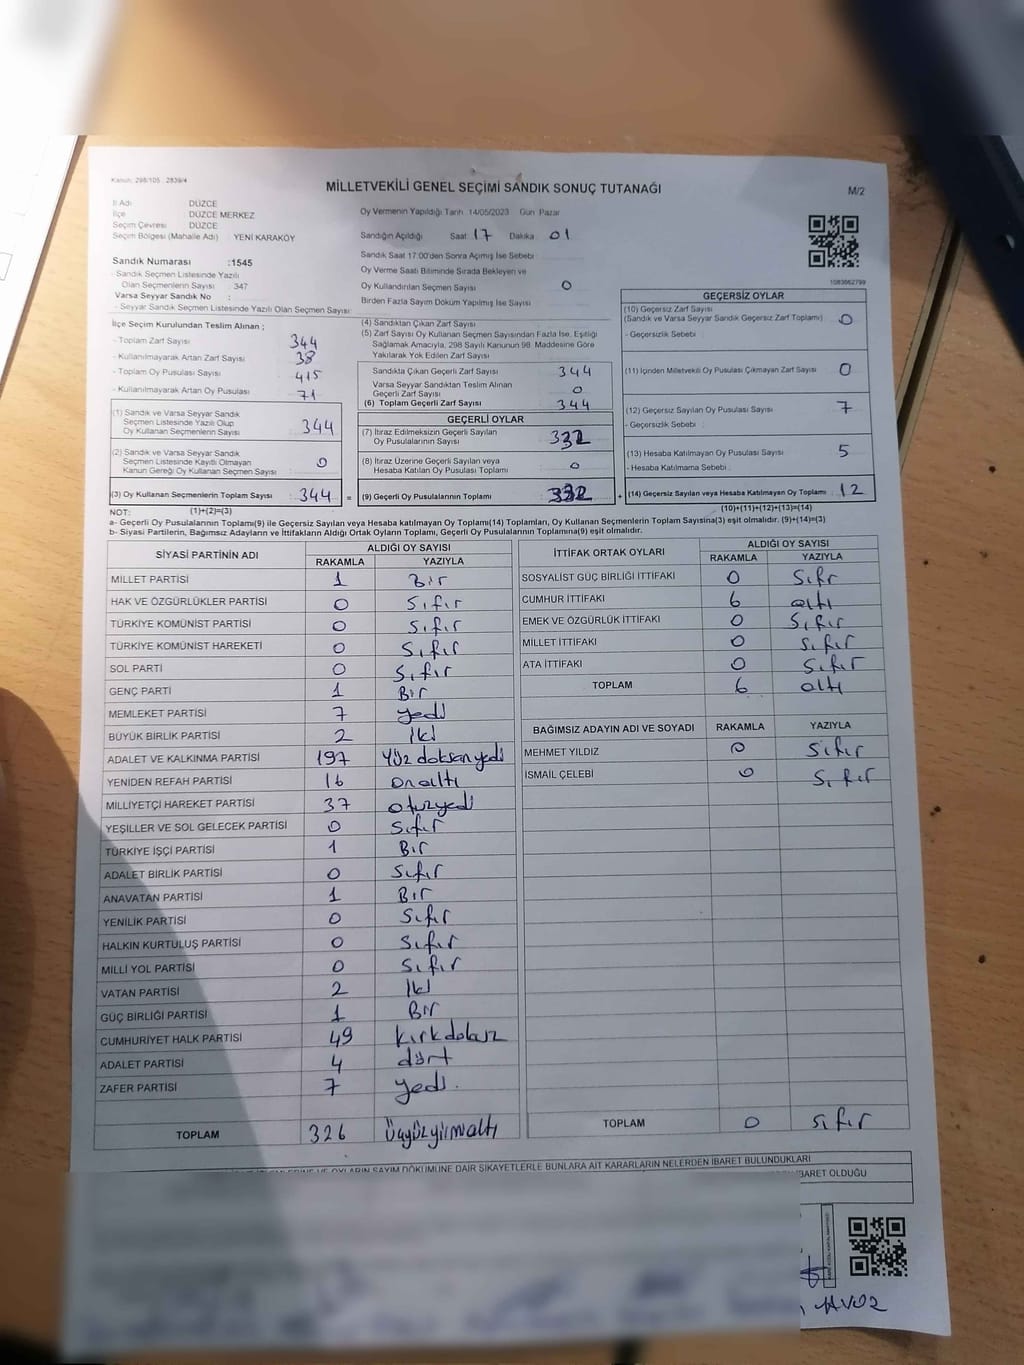 Kanun: 298/105 2839/4
MİLLETVEKİLİ GENEL SEÇİMİ SANDIK SONUÇ TUTANAĞI
M/2
İl Adı DÜZCE
İlçe DÜZCE MERKEZ
Seçim Çevresi DÜZCE
Seçim Bölgesi (Mahalle Adı) YENİ KARAKÖY
Oy Vermenin Yapıldığı Tarih 14/05/2023 Gün Pazar
Sandığın Açıldığı Saat 17 Dakika 01
Sandık Saat 17:00'den Sonra Açmış İse Sebebi
Oy Verme Saati Bitiminde Sırada Bekleyen ve
Oy Kullandırılan Seçmen Sayısı 0
Birden Fazla Sayım Döküm Yapılmış İse Sayısı
1083662799
Sandık Numarası :1545
- Sandık Seçmen Listesinde Yazılı
Olan Seçmenlerin Sayısı : 347
Varsa Seyyar Sandık No :
- Seyyar Sandık Seçmen Listesinde Yazılı Olan Seçmen Sayısı:
İlçe Seçim Kurulundan Teslim Alınan ;
- Toplam Zarf Sayısı 344
- Kullanılmayarak Artan Zarf Sayısı 38
- Toplam Oy Pusulası Sayısı 415
- Kullanılmayarak Artan Oy Pusulası 71
(1) Sandık ve Varsa Seyyar Sandık
Seçmen Listesinde Yazılı Olup
Oy Kullanan Seçmenlerin Sayısı : 344
(2) Sandık ve Varsa Seyyar Sandık
Seçmen Listesinde Kayıtlı Olmayan
Kanun Gereği Oy Kullanan Seçmen Sayısı : 0
(3) Oy Kullanan Seçmenlerin Toplam Sayısı : 344 =
(4) Sandıktan Çıkan Zarf Sayısı
(5) Zarf Sayısı Oy Kullanan Seçmen Sayısından Fazla İse, Eşitliği
Sağlamak Amacıyla, 298 Sayılı Kanunun 98. Maddesine Göre
Yakılarak Yok Edilen Zarf Sayısı
Sandıkta Çıkan Geçerli Zarf Sayısı 344
Varsa Seyyar Sandıktan Teslim Alınan
Geçerli Zarf Sayısı 0
(6) Toplam Geçerli Zarf Sayısı 344
GEÇERLİ OYLAR
(7) İtiraz Edilmeksizin Geçerli Sayılan
Oy Pusulalarının Sayısı 332
(8) İtiraz Üzerine Geçerli Sayılan veya
Hesaba Katılan Oy Pusulası Toplamı 0
(9) Geçerli Oy Pusulalarının Toplamı 332 +
GEÇERSİZ OYLAR
(10) Geçersiz Zarf Sayısı
(Sandık ve Varsa Seyyar Sandık Geçersiz Zarf Toplamı) : 0
- Geçersizlik Sebebi :
(11) İçinden Milletvekili Oy Pusulası Çıkmayan Zarf Sayısı 0
(12) Geçersiz Sayılan Oy Pusulası Sayısı 7
- Geçersizlik Sebebi :
(13) Hesaba Katılmayan Oy Pusulası Sayısı 5
- Hesaba Katılmama Sebebi :
(14) Geçersiz Sayılan veya Hesaba Katılmayan Oy Toplamı : 12
NOT: (1)+(2)=(3)
(10)+(11)+(12)+(13)=(14)
a- Geçerli Oy Pusulalarının Toplamı(9) ile Geçersiz Sayılan veya Hesaba katılmayan Oy Toplamı(14) Toplamları, Oy Kullanan Seçmenlerin Toplam Sayısına(3) eşit olmalıdır. (9)+(14)=(3)
b- Siyasi Partilerin, Bağımsız Adayların ve İttifakların Aldığı Ortak Oyların Toplamı, Geçerli Oy Pusulalarının Toplamına(9) eşit olmalıdır.
SİYASİ PARTİNİN ADI ALDIĞI OY SAYISI
RAKAMLA YAZIYLA
MİLLET PARTİSİ 1 Bir
HAK VE ÖZGÜRLÜKLER PARTİSİ 0 Sıfır
TÜRKİYE KOMÜNİST PARTİSİ 0 Sıfır
TÜRKİYE KOMÜNİST HAREKETİ 0 Sıfır
SOL PARTİ 0 Sıfır
GENÇ PARTİ 1 Bir
MEMLEKET PARTİSİ 7 yedi
BÜYÜK BİRLİK PARTİSİ 2 İki
ADALET VE KALKINMA PARTİSİ 197 Yüz doksan yedi
YENİDEN REFAH PARTİSİ 16 On altı
MİLLİYETÇİ HAREKET PARTİSİ 37 otuzyedi
YEŞİLLER VE SOL GELECEK PARTİSİ 0 Sıfır
TÜRKİYE İŞÇİ PARTİSİ 1 Bir
ADALET BİRLİK PARTİSİ 0 Sıfır
ANAVATAN PARTİSİ 1 Bir
YENİLİK PARTİSİ 0 Sıfır
HALKIN KURTULUŞ PARTİSİ 0 Sıfır
MİLLİ YOL PARTİSİ 0 Sıfır
VATAN PARTİSİ 2 İki
GÜÇ BİRLİĞİ PARTİSİ 1 Bir
CUMHURİYET HALK PARTİSİ 49 kırkdokuz
ADALET PARTİSİ 4 dört
ZAFER PARTİSİ 7 yedi.
TOPLAM 326 Üçyüzyirmialtı
İTTİFAK ORTAK OYLARI ALDIĞI OY SAYISI
RAKAMLA YAZIYLA
SOSYALİST GÜÇ BİRLİĞİ İTTİFAKI 0 Sıfır
CUMHUR İTTİFAKI 6 altı
EMEK VE ÖZGÜRLÜK İTTİFAKI 0 Sıfır
MİLLET İTTİFAKI 0 Sıfır
ATA İTTİFAKI 0 Sıfır
TOPLAM 6 altı
BAĞIMSIZ ADAYIN ADI VE SOYADI RAKAMLA YAZIYLA
MEHMET YILDIZ 0 Sıfır
İSMAİL ÇELEBİ 0 Sıfır
TOPLAM 0 Sıfır
OYLARIN SAYIM DÖKÜMÜNE DAİR ŞİKAYETLERLE BUNLARA AİT KARARLARIN NELERDEN İBARET BULUNDUKLARI
İBARET OLDUĞU